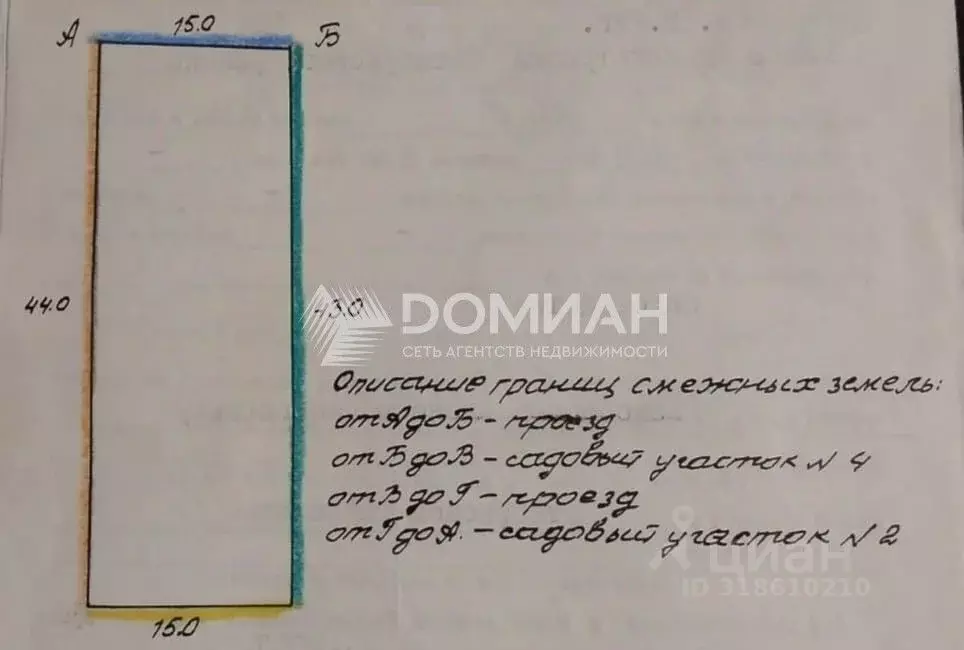 15.0
А
Б
44.0
43.0
ДОМИАН
СЕТЬ АГЕНТСТВ НЕДВИЖИМОСТИ
Описание границ смежных земель:
от А до Б - проезд
от Б до В - садовый участок № 4
от В до Г - проезд
от Г до А. - садовый участок № 2
циан
ID 318610210
15.0